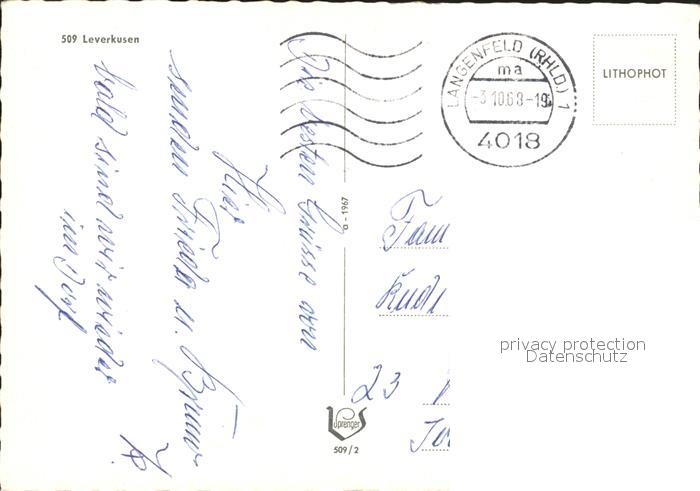 509 Leverkusen
LANGENFELD (RHLD.) 1
ma
-3.10.68-19
4018
LITHOPHOT
Die besten Grüsse von
Hier
senden Frieda u. Bruno
bald sind wir wieder
im Dorf
o - 1967
Fam
23
Sprenger
509/2
privacy protection
Datenschutz